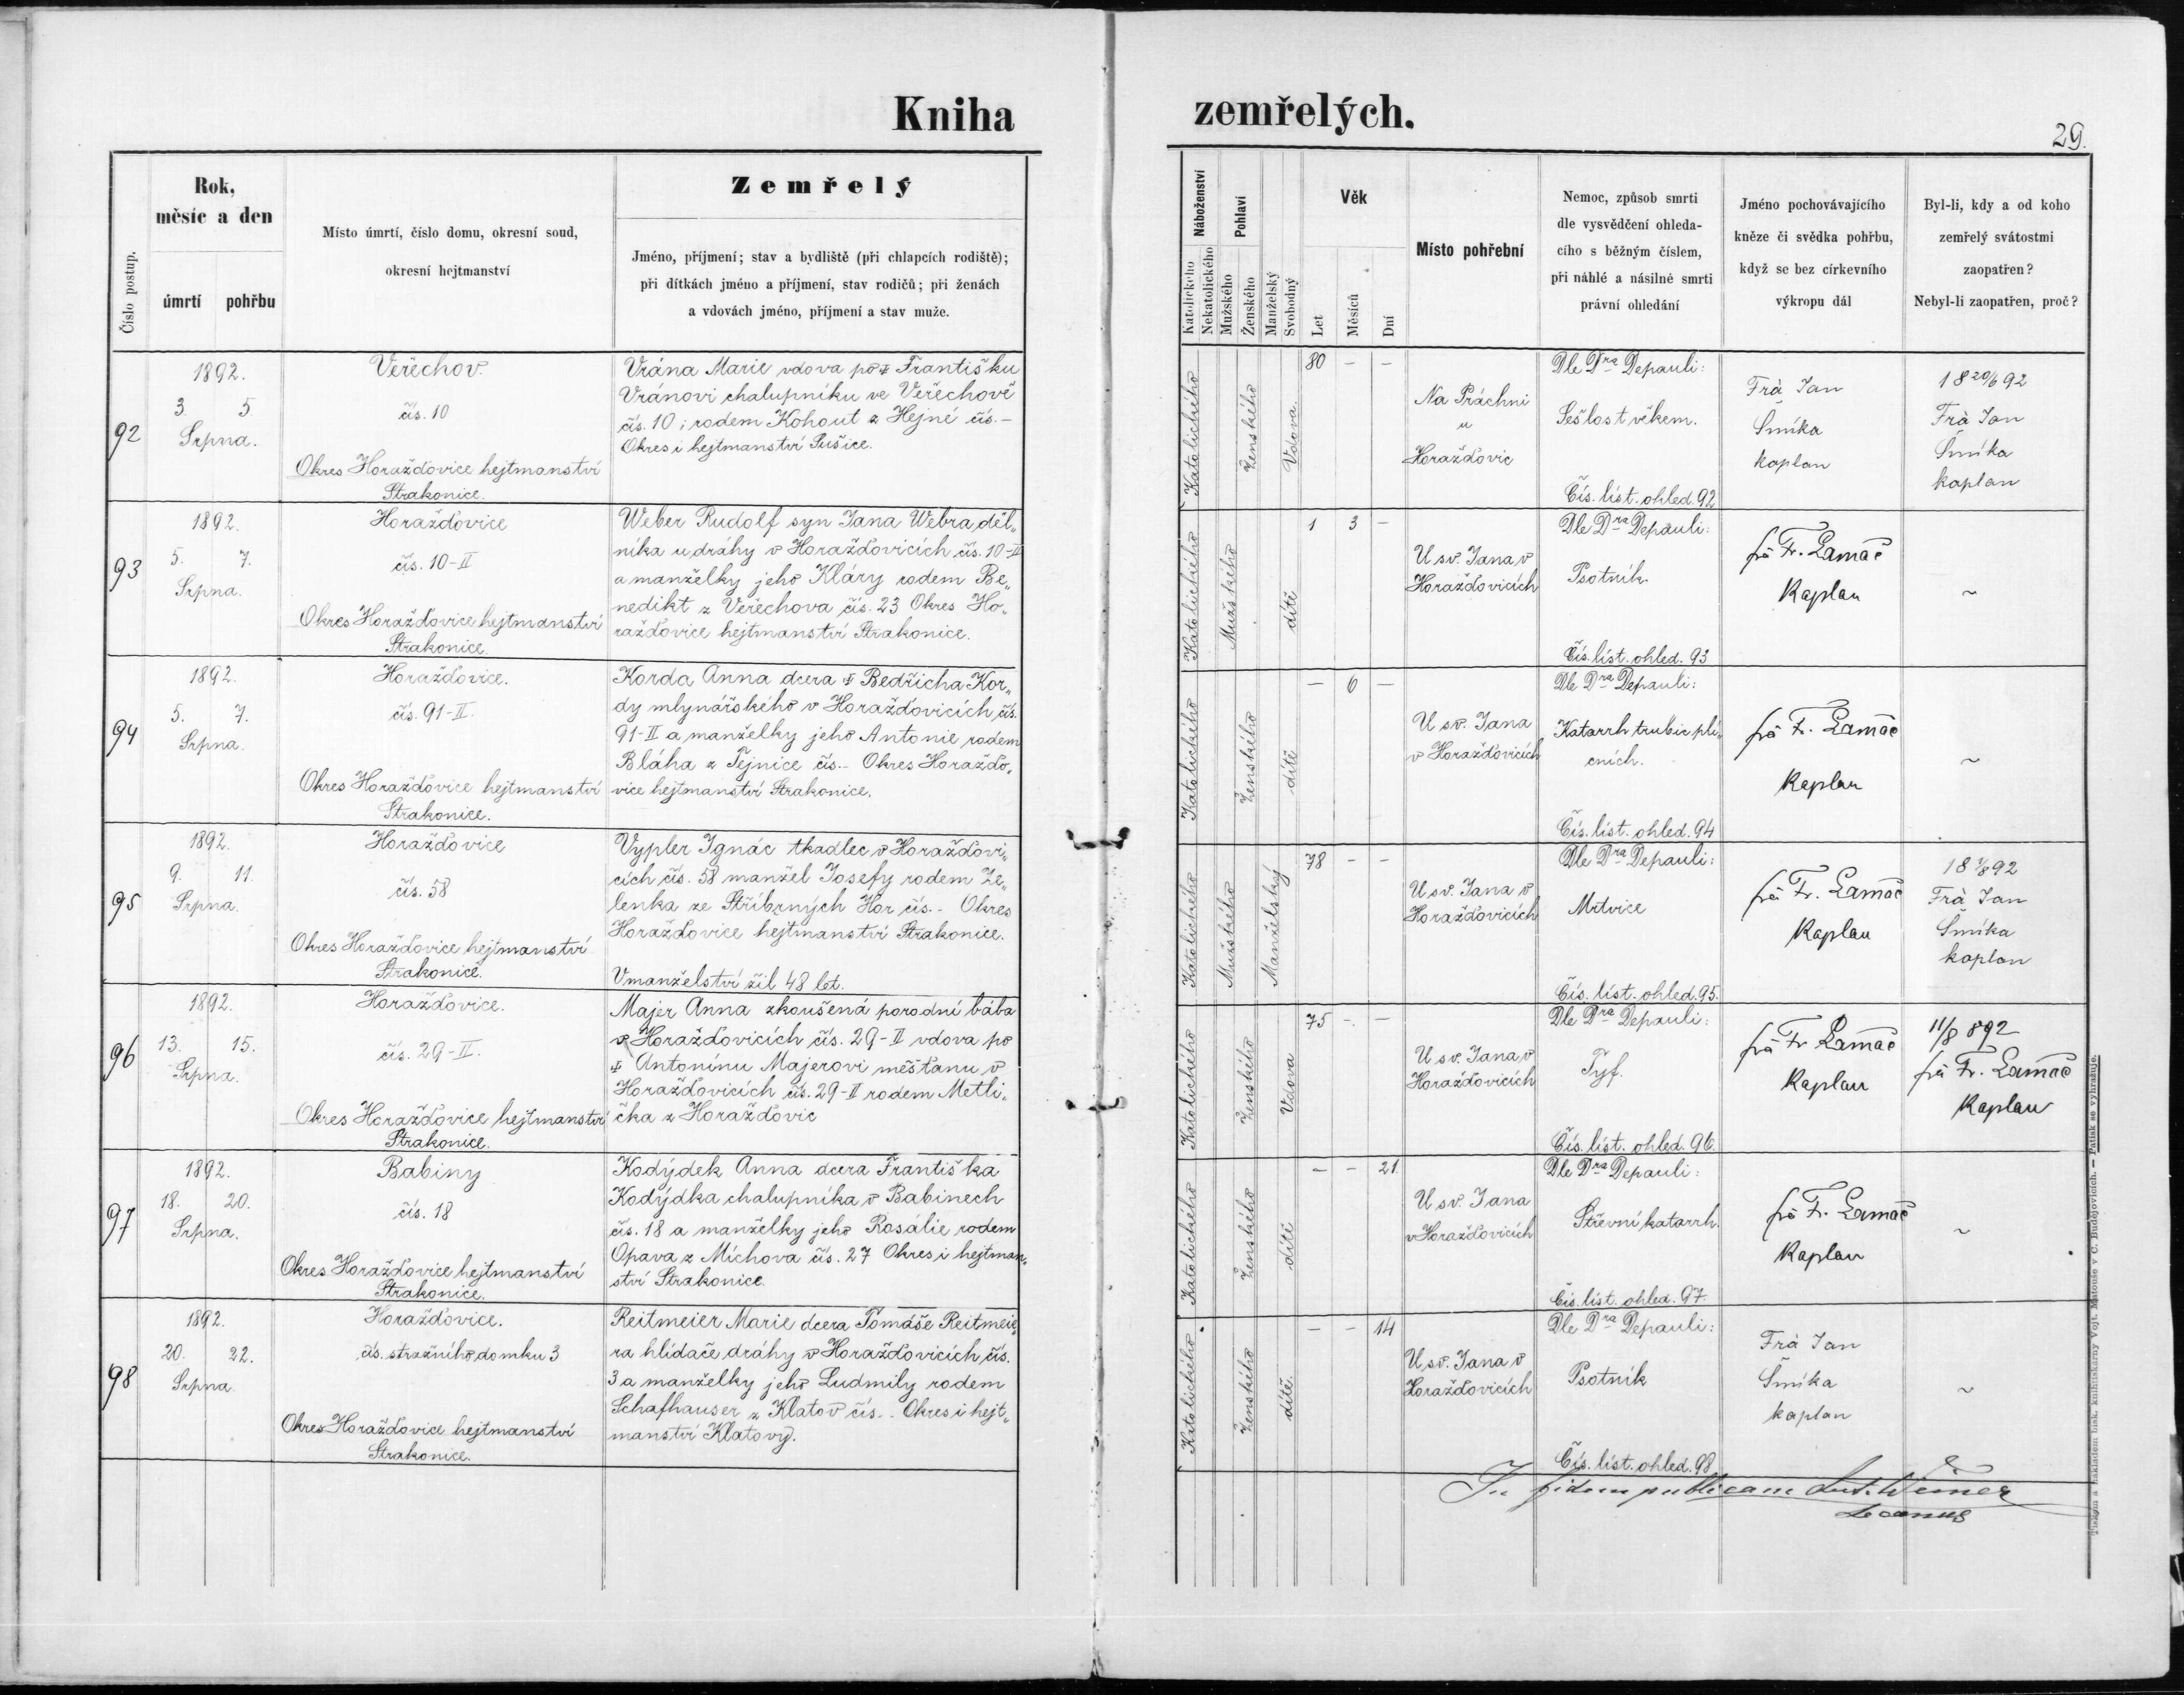 Kniha
zemřelých.
29.
Číslo postup.
Rok,
měsíc a den
úmrtí pohřbu
Místo úmrtí, číslo domu, okresní soud,
okresní hejtmanství
Zemřelý
Jméno, příjmení; stav a bydliště (při chlapcích rodiště);
při dítkách jméno a příjmení, stav rodičů; při ženách
a vdovách jméno, příjmení a stav muže.
Náboženství
Katolického
Nekatolického
Pohlaví
Mužského
Ženského
Manželský
Svobodný
Věk
Let
Měsíců
Dní
Místo pohřební
Nemoc, způsob smrti
dle vysvědčení ohleda-
cího s běžným číslem,
při náhlé a násilné smrti
právní ohledání
Jméno pochovávajícího
kněze či svědka pohřbu,
když se bez církevního
výkropu dál
Byl-li, kdy a od koho
zemřelý svátostmi
zaopatřen?
Nebyl-li zaopatřen, proč?
92
1892.
3. 5.
Srpna.
Veřechov.
čís. 10
Okres Horažďovice hejtmanství
Strakonice.
Vrána Marie vdova po ‡ Františku
Vránovi chalupníku ve Veřechově
čís. 10; rodem Kohout z Hejné čís. –
Okres i hejtmanství Sušice.
Katolického
Ženského
Vdova.
80 – –
Na Práchni
u
Horažďovic
Dle Dra Depauli:
Sešlost věkem.
Čís. líst. ohled. 92
Frà Jan
Šmíka
kaplan
18 20/6 92
Frà Jan
Šmíka
kaplan
93
1892.
5. 7.
Srpna.
Horažďovice
čís. 10-II
Okres Horažďovice hejtmanství
Strakonice.
Weber Rudolf syn Jana Webra děl„
níka u dráhy v Horažďovicích čís. 10-II
a manželky jeho Kláry rodem Be„
nedikt z Veřechova čís. 23 Okres Ho„
ražďovice hejtmanství Strakonice.
Katolického
Mužského
dítě
1 3 –
U sv. Jana v
Horažďovicích
Dle Dra Depauli:
Psotník.
Čís. líst. ohled. 93
frà Fr. Lamač
Kaplan
~
94
1892.
5. 7.
Srpna.
Horažďovice.
čís. 91-II.
Okres Horažďovice hejtmanství
Strakonice.
Korda Anna dcera ‡ Bedřicha Kor„
dy mlynářského v Horažďovicích čís.
91-II a manželky jeho Antonie rodem
Bláha z Tejnice čís. – Okres Horažďo„
vice hejtmanství Strakonice.
Katolického
Ženského
dítě
– 6 –
U sv. Jana
v Horažďovicích
Dle Dra Depauli:
Katarrh trubic pli„
cních.
Čís. líst. ohled. 94
frà Fr. Lamač
Kaplan
~
95
1892.
9. 11.
Srpna.
Horažďovice
čís. 58
Okres Horažďovice hejtmanství
Strakonice.
Vypler Ignác tkadlec v Horažďovi„
cích čís. 58 manžel Josefy rodem Ze„
lenka ze Stříbrných Hor čís. – Okres
Horažďovice hejtmanství Strakonice.
V manželství žil 48 let.
Katolického
Mužského
Manželský
78 – –
U sv. Jana v
Horažďovicích
Dle Dra Depauli:
Mrtvice
Čís. líst. ohled. 95.
frà Fr. Lamač
Kaplan
Frà Jan
Šmíka
kaplan
96
1892.
13. 15.
Srpna.
Horažďovice.
čís. 29-II.
Okres Horažďovice hejtmanství
Strakonice.
Majer Anna zkoušená porodní bába
v Horažďovicích čís. 29-II vdova po
‡ Antonínu Majerovi měšťanu v
Horažďovicích čís. 29-II rodem Metli„
čka z Horažďovic
Katolického
Ženského
Vdova
75 – –
U sv. Jana v
Horažďovicích
Dle Dra Depauli:
Tyf.
Čís. líst. ohled. 96.
frà Fr Lamač
Kaplan
11/8 892
frà Fr. Lamač
Kaplan
97
1892.
18. 20.
Srpna.
Babiny
čís. 18
Okres Horažďovice hejtmanství
Strakonice.
Kodýdek Anna dcera Františka
Kodýdka chalupníka v Babinech
čís. 18 a manželky jeho Rosálie rodem
Opava z Míchova čís. 27 Okres i hejtman„
ství Strakonice.
Katolického
Ženského
dítě
– – 21.
U sv. Jana
v Horažďovicích
Dle Dra Depauli:
Střevní katarrh.
Čís. líst. ohled. 97.
frà Fr. Lamač
Kaplan
~
98
1892.
20. 22.
Srpna.
Horažďovice.
čís. stražního domku 3
Okres Horažďovice hejtmanství
Strakonice.
Reitmeier Marie dcera Tomáše Reitmeie„
ra hlídače dráhy v Horažďovicích čís.
3 a manželky jeho Ludmily rodem
Schafhauser z Klatov čís. – Okres i hejt„
manství Klatovy.
Katolického
Ženského
dítě.
– – 14
U sv. Jana v
Horažďovicích
Dle Dra Depauli:
Psotník
Čís. líst. ohled. 98
Frà Jan
Šmíka
kaplan
~
In fidem publicam Ant. Weiner
Decanus
Tiskem a nákladem bisk. knihtiskárny Vojt. Matouše v Č. Budějovicích. — Patisk se vyhražuje.